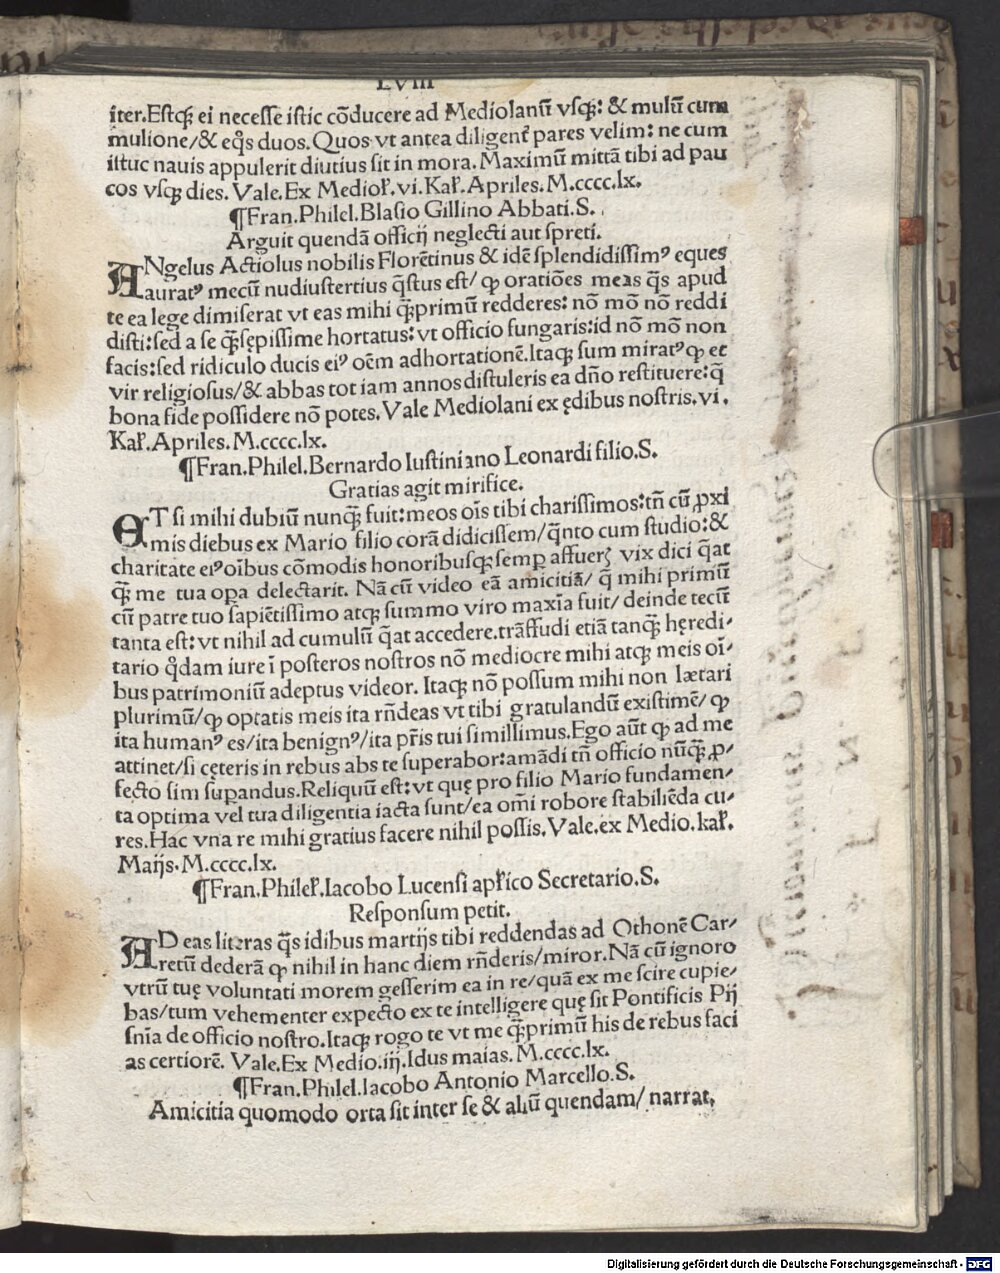 LVIII
iter.Estqꝫ ei necesse istic cōducere ad Mediolanū vsqꝫ: & mulū cum
mulione/& eq̊s duos.Quos vt antea diligent᷑ pares velim: ne cum
istuc nauis appulerit diutius sit in mora. Maximū mittā tibi ad pau
cos vsqꝫ dies. Vale. Ex Mediol̵. vi. Kal̵. Apriles. M.cccc.lx.
¶Fran.Philel.Blasio Gillino Abbati.S.
Arguit quendā officij neglecti aut spreti.
ANgelus Actiolus nobilis Florētinus & idē splendidissimꝰ eques
auratꝰ mecū nudiustertius q̄stus est/ ꝙ oratiōes meas q̄s apud
te ea lege dimiserat vt eas mihi q̄ꝫprimū redderes: nō mō nō reddi
disti:sed a se q̄ꝫsępissime hortatus: vt officio fungaris:id nō mō non
facis:sed ridiculo ducis eiꝰ oēm adhortationē.Itaqꝫ sum miratꝰ ꝙ et
vir religiosus/& abbas tot iam annos distuleris ea dn̄o restituere:q̄
bona fide possidere nō potes. Vale Mediolani ex ędibus nostris. vi.
Kal̵. Apriles. M.cccc.lx.
¶Fran.Philel.Bernardo Iustiniano Leonardi filio.S.
Gratias agit mirifice.
ET si mihi dubiū nunq̄ꝫ fuit:meos oīs tibi charissimos:tn̄ cū ꝓxi
mis diebus ex Mario filio corā didicissem/q̄nto cum studio:&
charitate eiꝰ oībus cōmodis honoribusqꝫ semp̲ affuerꝭ vix dici q̄at
q̄ꝫ me tua op̲a delectarit. Nā cū video eā amicitiā/ q̄ mihi primū
cū patre tuo sapiētissimo atqꝫ summo viro maxīa fuit/ deinde tecū
tanta est: vt nihil ad cumulū q̄at accedere.trāffudi etiā tanq̄ꝫ hęredi-
tario q̊dam iure ī posteros nostros nō mediocre mihi atqꝫ meis oī-
bus patrimoniū adeptus videor. Itaqꝫ nō possum mihi non lætari
plurimū/ꝙ optatis meis ita rn̄deas vt tibi gratulandū existimē/ ꝙ
ita humanꝰ es/ita benignꝰ/ita pr̄is tui simillimus.Ego aūt ꝙ ad me
attinet/si cęteris in rebus abs te superabor:amādi tn̄ officio nūq̄ꝫ ꝓ-
fecto sim sup̲andus.Reliquū est: vt quę pro filio Mario fundamen-
ta optima vel tua diligentia iacta sunt/ea om̄i robore stabiliēda cu-
res.Hac vna re mihi gratius facere nihil possis.Vale.ex Medio.kal̵.
Maijs. M.cccc.lx.
¶Fran.Philel̵.Iacobo Lucensi apl̵ico Secretario.S.
Responsum petit.
AD eas literas q̄s idibus martijs tibi reddendas ad Othonē Car-
retū dederā ꝙ nihil in hanc diem rn̄deris/miror.Nā cū ignoro
vtrū tuę voluntati morem gesserim ea in re/quā ex me scire cupie-
bas/tum vehementer expecto ex te intelligere quę sit Pontificis Pij
sn̄ia de officio nostro.Itaqꝫ rogo te vt me q̄ꝫprimū his de rebus faci
as certiorē. Vale.Ex Medio.iij.Idus maias. M.cccc.lx.
¶Fran.Philel.Iacobo Antonio Marcello.S.
Amicitia quomodo orta sit inter se & aliū quendam/ narrat.
Digitalisierung gefördert durch die Deutsche Forschungsgemeinschaft - DFG